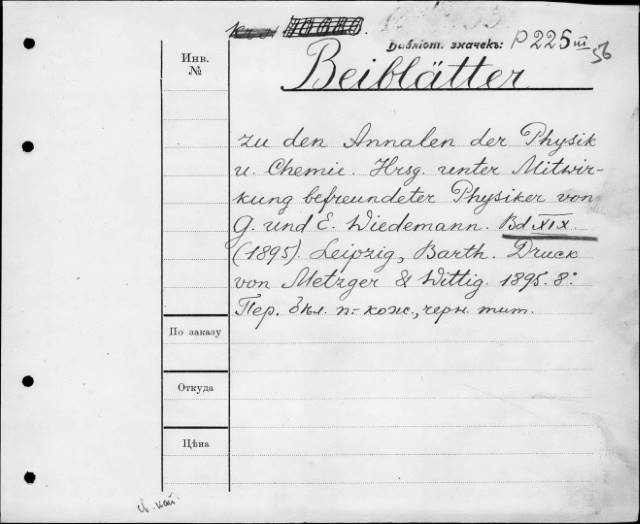 Библіот. значекъ: P 225 III/56
Инв. №
Beiblätter
zu den Annalen der Physik
u. Chemie. Hrsg. unter Mitwir-
kung befreundeter Physiker von
G. und E. Wiedemann. Bd. XIX.
(1895). Leipzig, Barth. Druck
von Metzger & Wittig. 1895. 8:
Пер. бѣл. п.-кож., черн. тит.
По заказу
Откуда
Цѣна